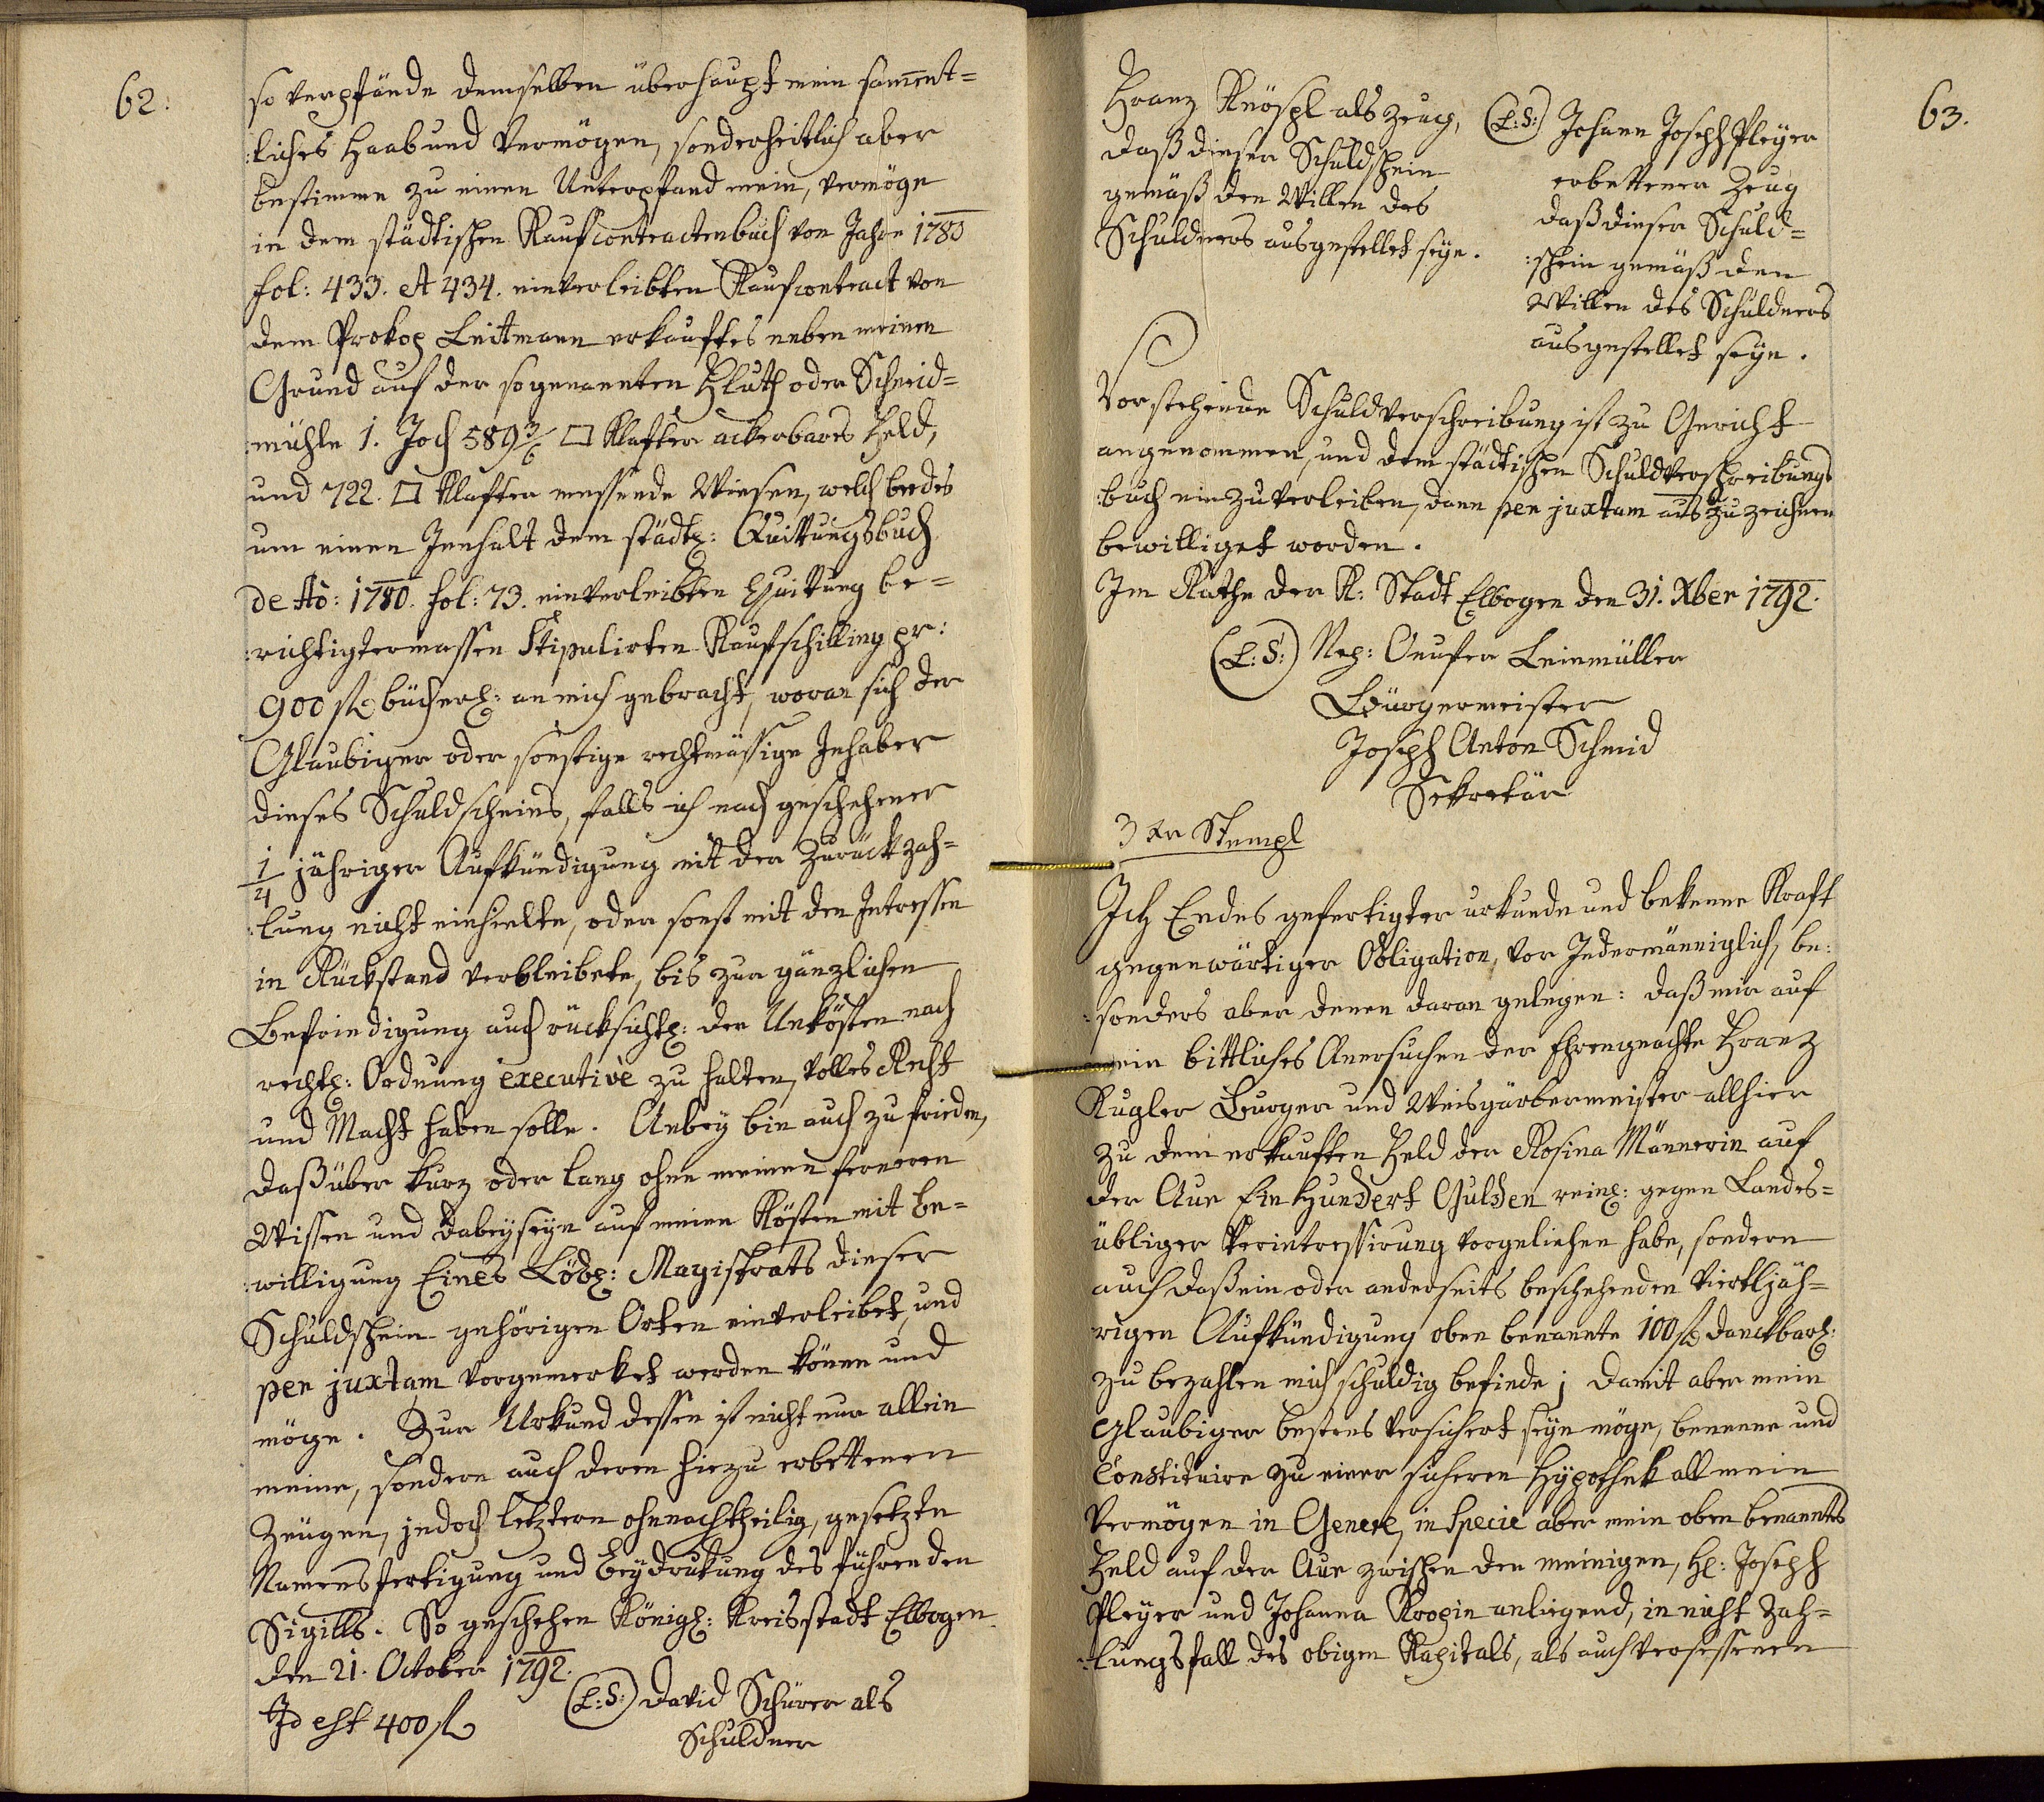 62.
so verpfände demselben überhaupt mein samēnt=
:liches Haab und Vermögen, sonderheitlich aber
bestimme zu einen Unterpfand mein, vermöge
in dem städtischen Kaufcontractenbuch von Jahre 1780
fol: 433. et 434. einverleibten Kaufcontract von
dem Prokop Leittmann erkauftes neben meinen
Grund auf der sogenannten Hluth oder Schneid=
:mühle 1. Joch 589 3/6 □ Klafter ackerbares Feld,
und 722. □ Klafter messende Wiesen, welch beedes
um einen Innhalt dem städtl: Quittungsbuch
de Aō: 1780. fol: 73. einverleibten Quittung be=
:richtigtermassen Stipulirten Kaufschilling pr:
900 fl bücherl: an mich gebracht, woran sich der
Glaubiger oder sonstige rechtmässige Inhaber
dieses Schuldscheins, falls ich nach geschehener
1/4 jähriger Aufkündigung mit der Zurückzah=
:lung nicht einhielte, oder sonst mit den Intressen
in Rückstand verbleibete, bis zur gänzlichen
Befriedigung auch rücksichtl: der Unkösten nach
rechtl: Ordnung executivè zu halten, volles Recht
und Macht haben solle. Anbey bin auch zufrieden,
daß über kurz oder lang ohne meinen ferneren
Wissen und dabeyseyn auf meine Kösten mit be=
:willigung Eines Löbl: Magistrats dieser
Schuldschein gehörigen Orten einverleibet, und
per juxtam vorgemerket werden könne und
möge. Zur Urkund dessen ist nicht nur allein
meine, sondern auch deren hiezu erbettenen
Zeugen, jedoch letztern ohnnachtheilig, gesetzte
Namensfertigung und Beydrukung des führenden
Sigills. So geschehen Königl: Kreisstadt Elbogen
den 21. October 1792.
Id est 400 fl
(L:S:) David Schürer als
Schuldner
63.
Franz Knöspl als Zeug,
daß dieser Schuldschein
gemäß den Willen des
Schuldners ausgestellet seye.
(L:S:) Johann Joseph Pleyer
erbettener Zeug
daß dieser Schuld=
:schein gemäß den
Willen des Schuldners
ausgestellet seye.
Vorstehende Schuldverschreibung ist zu Gericht
angenommen, und dem städtischen Schuldverschreibungs
:buch einzuverleiben, dann per juxtam auszuzeichnen
bewilliget worden.
Im Rathe der K: Stadt Elbogen den 31. Xber 1792.
(L:S:) Nep: Onufer Leinmüller
Bürgermeister
Joseph Anton Schmid
Sekretär
3 xr Stempl
Ich Endes gefertigter urkunde und bekenne Kraft
gegenwärtiger Obligation, vor Jedermänniglich, be:
:sonders aber denen daran gelegen: daß mir auf
mein bittliches Anersuchen der Ehrengeachte Franz
Kugler Burger und Weisgärbermeister allhier
zu dem erkauften Feld der Rosina Männerin auf
der Aue Ein Hundert Gulden reinl: gegen Landes=
übliger Verintressirung vorgeliehen habe, sondern
auch daß ein oder anderseits beschehenden Viertljäh=
rigen Aufkündigung oben benannte 100 fl danckbarl:
zu bezahlen mich schuldig befinde; damit aber mein
Glaubiger bestens versichert seyn möge, benenne und
Constituire zu einer sicheren Hypothek all mein
Vermögen in Genere, in Specie aber mein oben benanntes
Feld auf der Aue zwischen den meinigen, H: Joseph
Pleyer und Johanna Kropin anliegend, in nicht Zah=
:lungsfall des obigen Kapitals, als auch versessenen